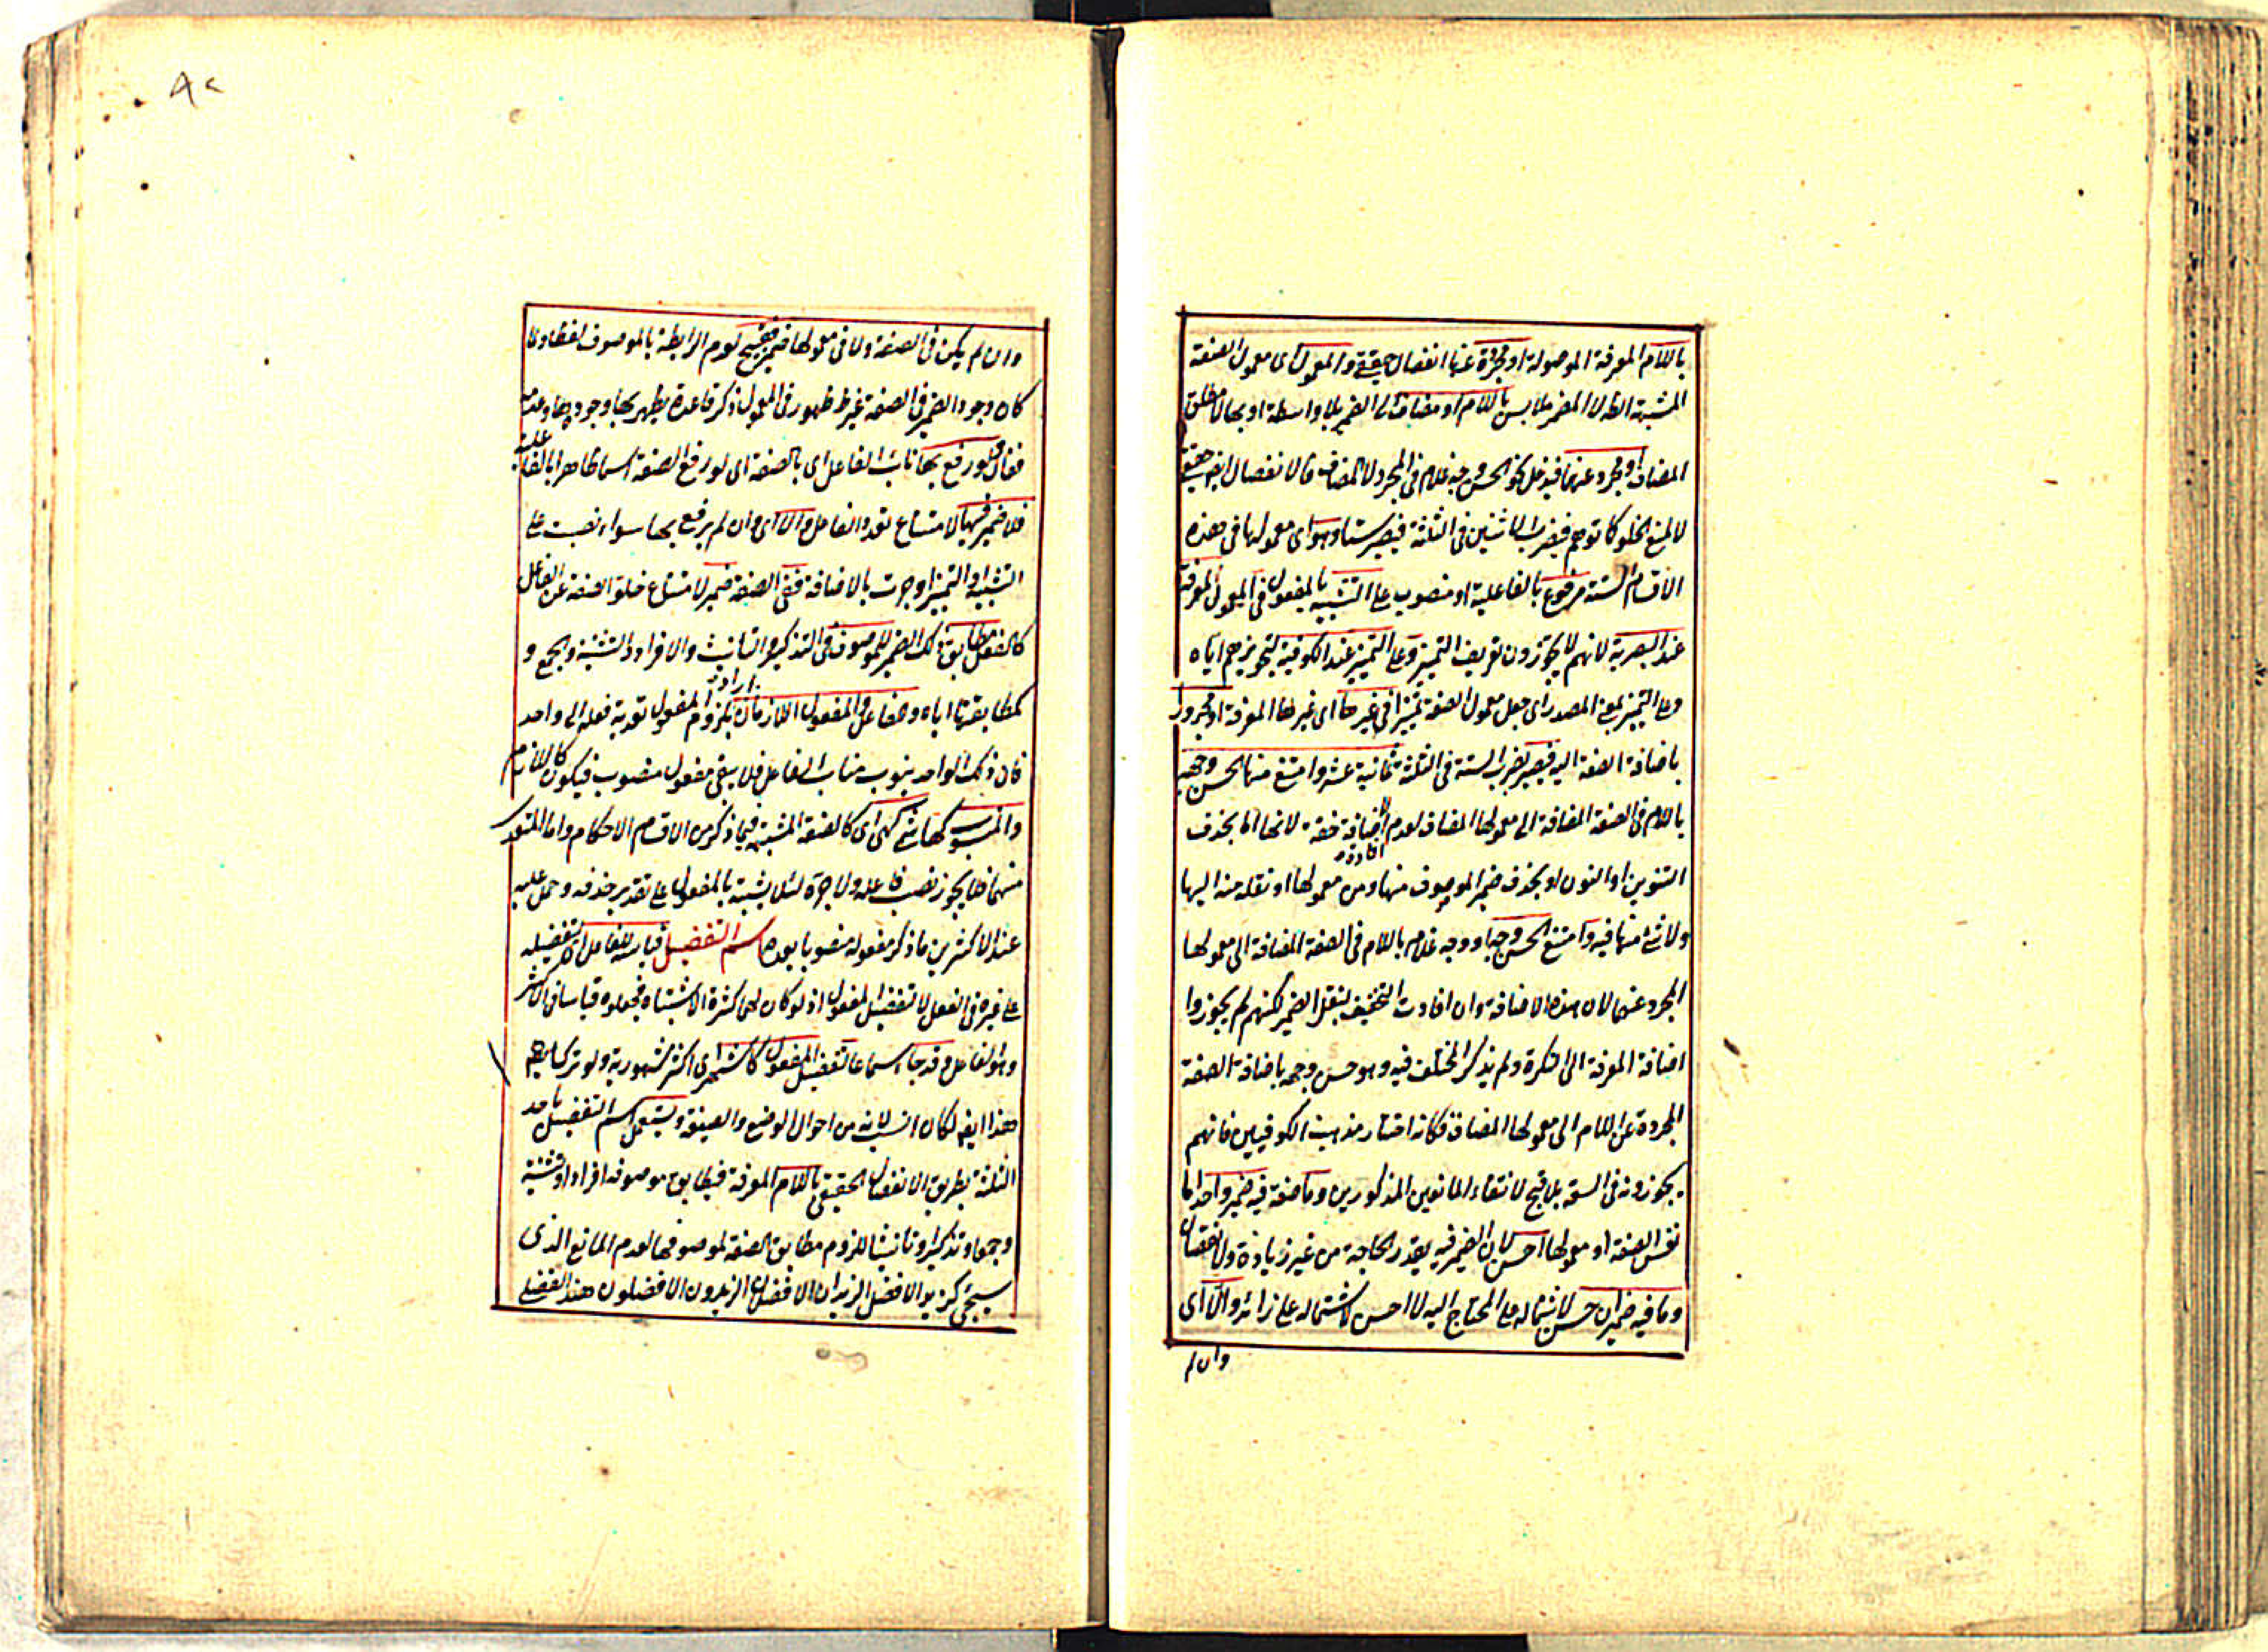 باللام المعرفة الموصولة او مجردة عنها انفصال حقيقة والمعمول اى معمول الصفة
المشبهة الظاهر لا المضمر ملابس باللام او مضاف الى الضمير بلا واسطة او بها لا مطلق
المضاف او مجرد عنهما فيدخل نحو الحسن وجه غلام فى المجرد لا المضاف فالانفصال ايضا حقيقى
لا لمنع الخلو كما توهم فيضرب الاثنين فى الثلثة فيصير ستا وهو اى معمولها فى هذه
الاقسام الستة مرفوع بالفاعلية او منصوب على التشبيه بالمفعول فى المعمول المعرفة
عند البصرية لانهم لا يجوزون تعريف التمييز وعلى التمييز عند الكوفية لتجويزهم اياه
وعلى التمييز بمعنى المصدر اى جعل معمول الصفة تمييزا فى غيرها اى غير هذا المعرفة او مجرور
باضافة الصفة اليه فيصير بضرب الستة فى الثلثة ثمانية عشر وامتنع منها الحسن وجهه
باللام فى الصفة المضافة الى معمولها المضاف لعدم افادة الاضافة خفة لانها اما بحذف
التنوين او النون او بحذف ضمير الموصوف منها ومن معمولها او نقله منه اليها
ولا شئ منها فيه وامتنع الحسن وجه او وجه غلام باللام فى الصفة المضافة الى معمولها
المجرد عنهما لان هذه الاضافة وان افادت التخفيف بنقل الضمير لكنهم لم يجوزوا
اضافة المعرفة الى النكرة ولم يذكر المختلف فيه وهو حسن وجهه باضافة الصفة
المجردة عن اللام الى معمولها المضاف فكانه اختار مذهب الكوفيين فانهم
يجوزونه فى السعة بلا قبح لانتفاء المانعين المذكورين وما صفة فيه ضمير واحد اما
نفس الصفة او معمولها احسن لان الضمير فيه بقدر الحاجة من غير زيادة ولا نقصان
وما فيه ضميران حسن لاشتماله على المحتاج اليه لا احسن لاشتماله على زائد والا اى
وان لم
٨٢
وان لم يكن فى الصفة ولا فى معمولها ضمير فقبيح لعدم الرابطة بالموصوف لفظا ولما
كان وجود الضمير فى الصفة غير ظاهر ظهوره فى المعمول ذكر قاعدة يظهر بها وجودها وعدمه
فقال فلو رفع بها نائب الفاعل اى بالصفة اى لو رفع الصفة اسما ظاهرا بالفاعلية
فلا ضمير فيها لامتناع تعدد الفاعل والا اى وان لم يرفع بها سواء نصبت على
التشبيه او التمييز او جرت بالاضافة ففى الصفة ضمير لامتناع خلو الصفة عن الفاعل
كالفعل مطابق ذلك الضمير للموصوف فى التذكير والتأنيث والافراد والتثنية والجمع و
كمطابقتها اياه وهما الفاعل والمفعول اللازمان اراد بلزوم المفعول تعدية فعله الى واحد
فان ذلك الواحد ينوب مناب الفاعل فلا يبقى مفعول منصوب فيكون كاللازم
والمنسوب كهاشمى كهى اى كالصفة المشبهة فيما ذكر من الاقسام الاحكام واما المتعدى
منهما فلا يجوز نصب فاعله ولا جره لئلا يشبه بالمفعول على تقدير حذفه وحمل عليه
عند الاكثرين ما ذكر مفعوله منصوبا بعدها اسم التفضيل قياسه للفاعل اى لتفضيله
على غيره فى الفعل لا تفضيل المفعول اذ لو كان لهما كثرة الاشتباه فجعلوه قياسا فى الاكثر
وهو الفاعل وقد جاء سماعا لتفضيل المفعول كاشهر اى اكثر مشهورية ولو ترك
هذا ايضا لكان انسب لانه من احوال الوضع والصيغة ويستعمل اسم التفضيل باحد
الثلثة بطريق الانفصال الحقيقى باللام المعرفة فيطابق موصوفه افرادا وتثنية
وجمعا وتذكيرا وتأنيثا للزوم مطابق الصفة لموصوفها لعدم المانع الذى
سيجئ كزيد الافضل الزيدان الافضلان الزيدون الافضلون هند الفضلى